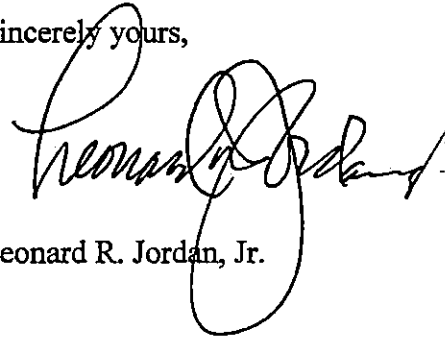 incerely yours,
Leonard Jordan
eonard R. Jordan, Jr.